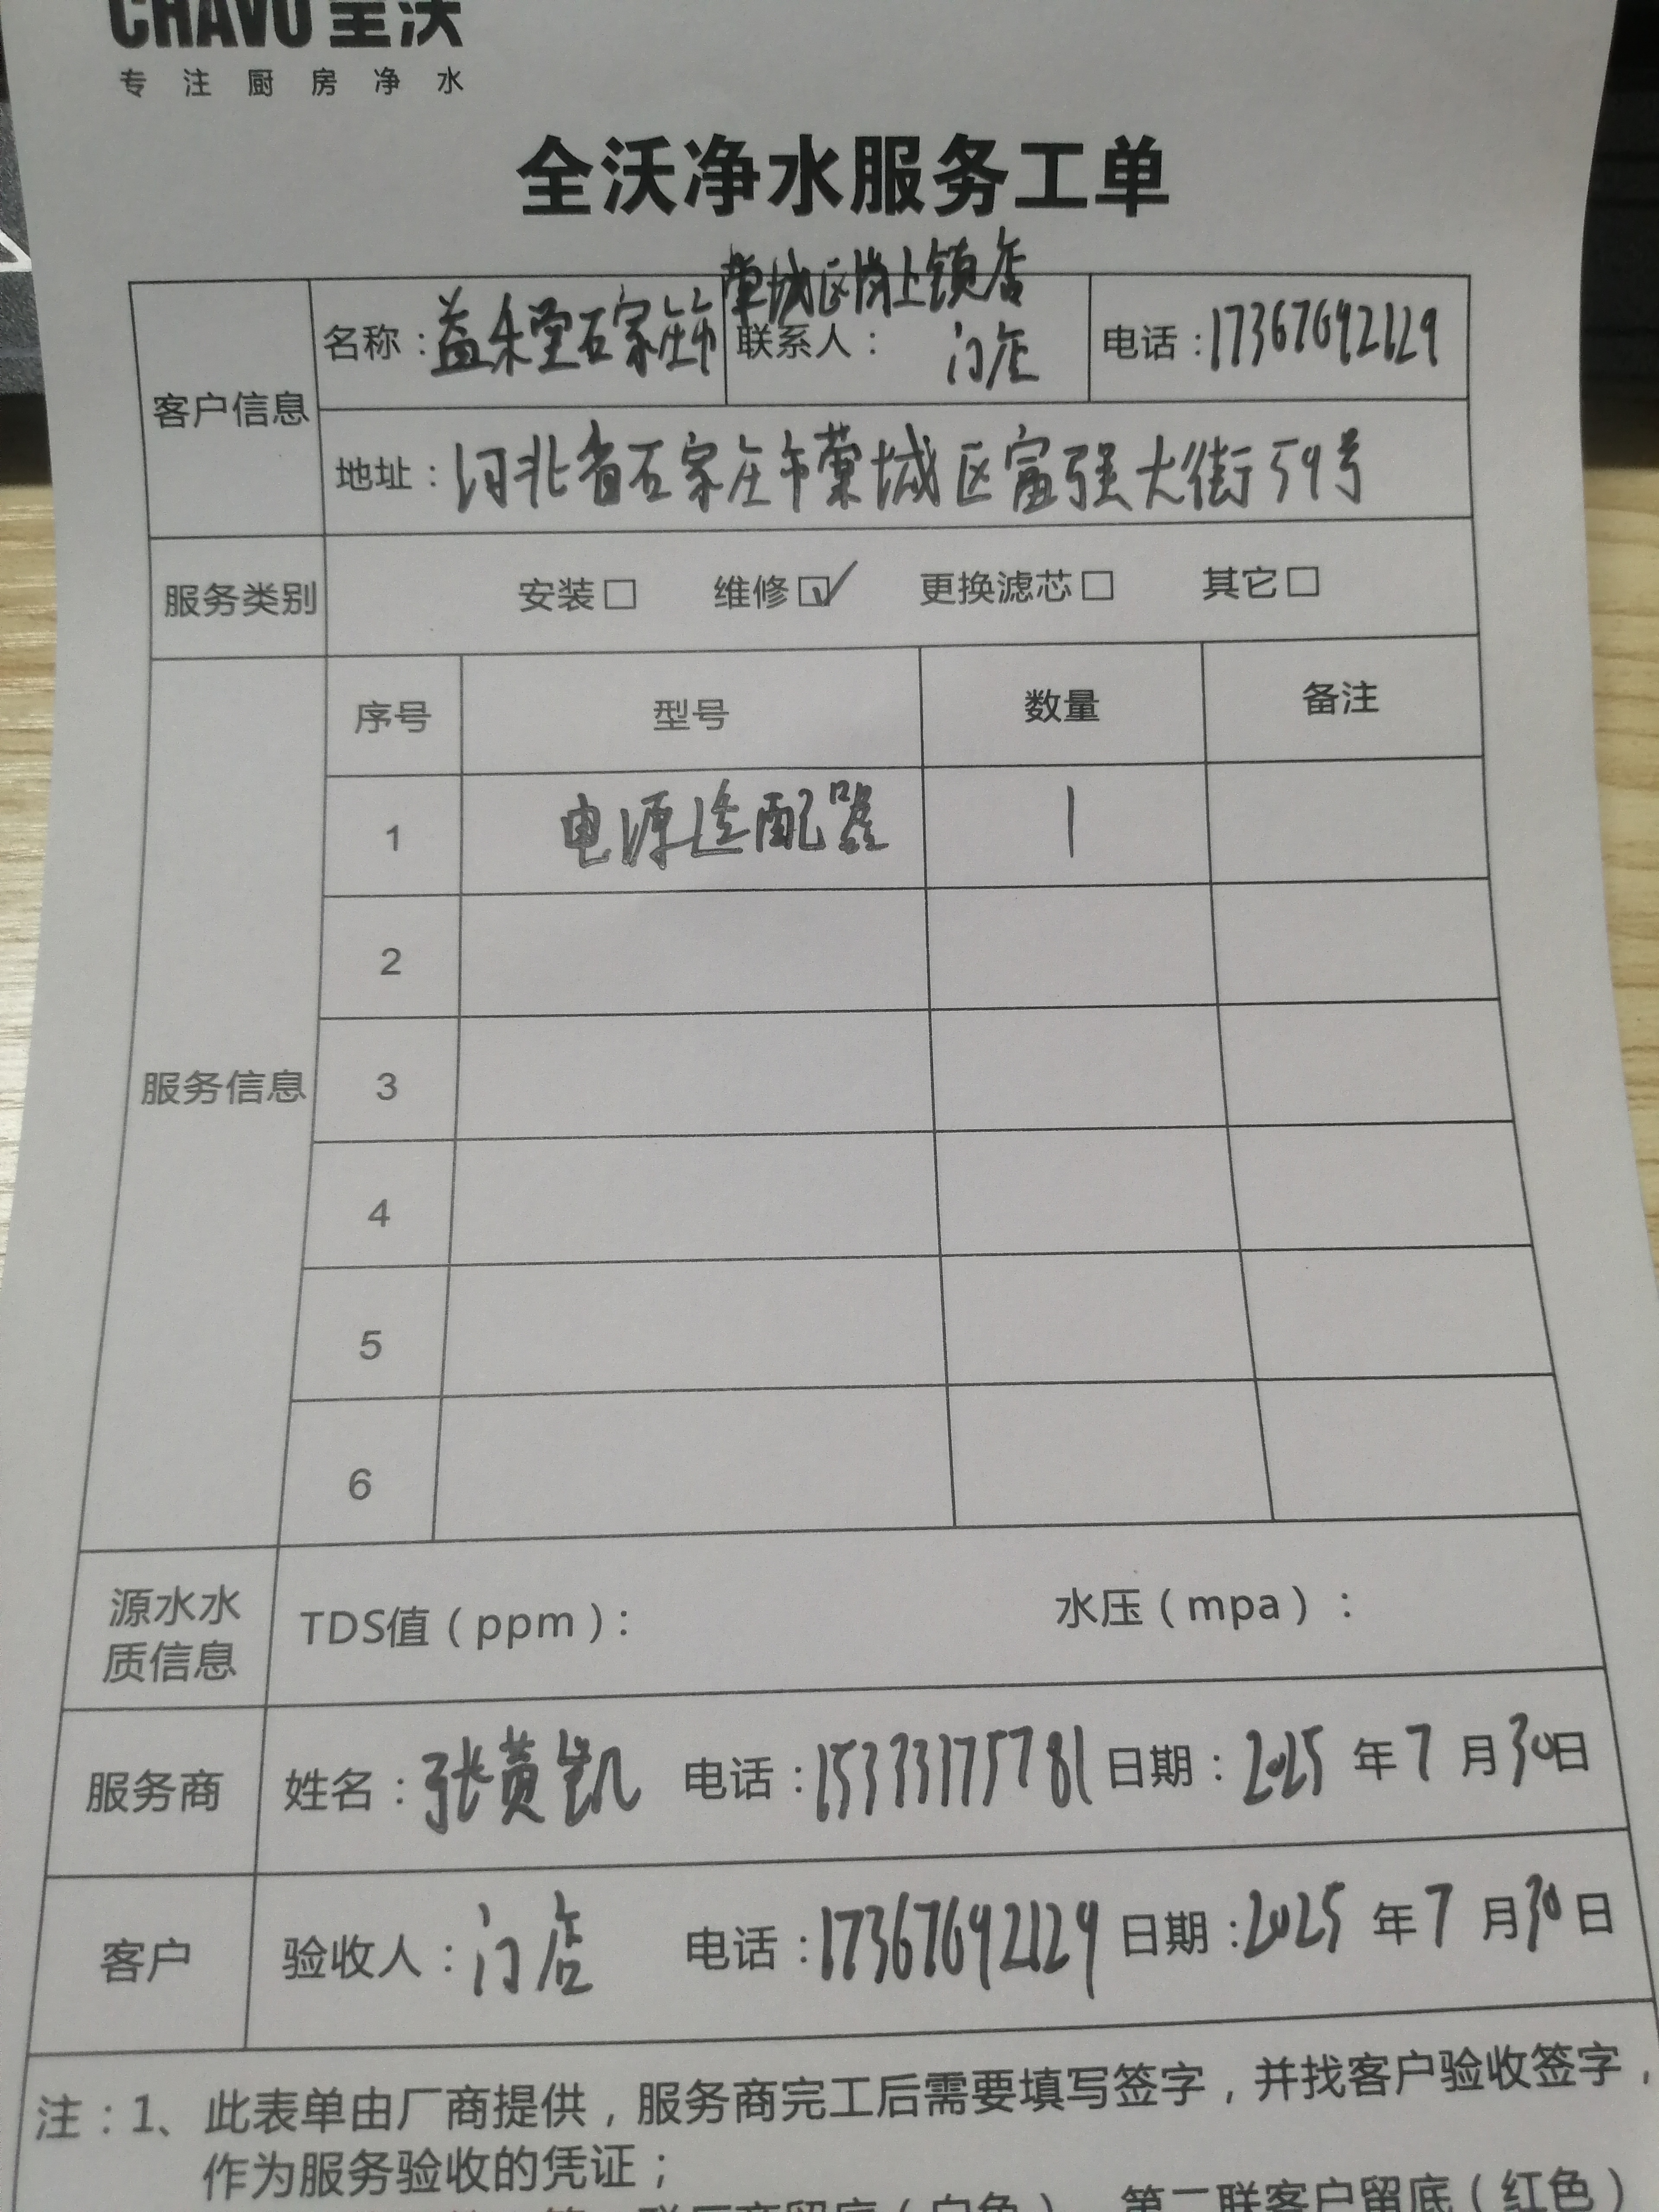 CHAVO 全沃
专注厨房净水
全沃净水服务工单
藁城区岗上镇店
客户信息 名称：益禾堂石家庄市 联系人：门店 电话：17367692129
地址：河北省石家庄市藁城区富强大街59号
服务类别 安装□ 维修☑ 更换滤芯□ 其它□
服务信息 序号 型号 数量 备注
1 电源适配器 1
2
3
4
5
6
源水水质信息 TDS值（ppm）： 水压（mpa）：
服务商 姓名：张黄凯 电话：15333175781 日期：2025年7月30日
客户 验收人：门店 电话：17367692129 日期：2025年7月30日
注：1、此表单由厂商提供，服务商完工后需要填写签字，并找客户验收签字，
作为服务验收的凭证；
联厂商留底（白色） 第二联客户留底（红色）